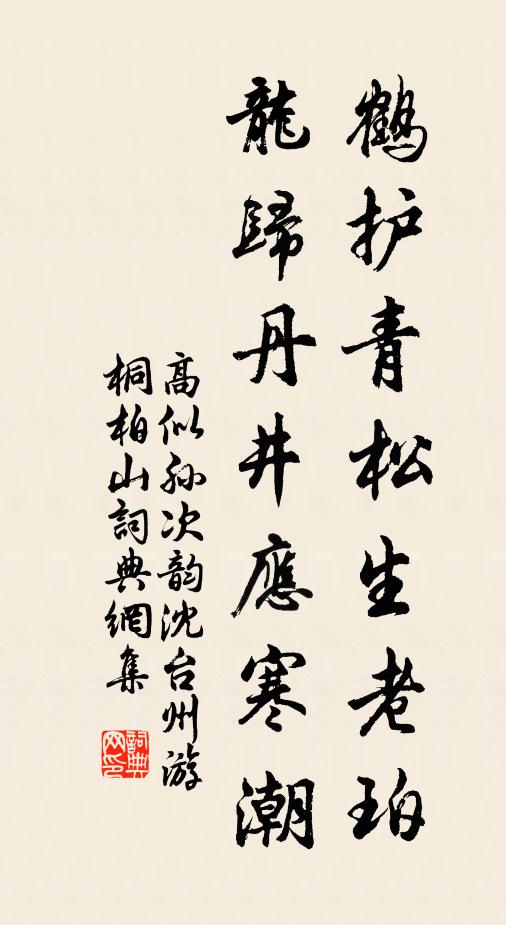 鶴护青松生老珀
龍歸丹井應寒潮
高似孙次韵沈台州游
桐柏山詞典網集
詞典网印